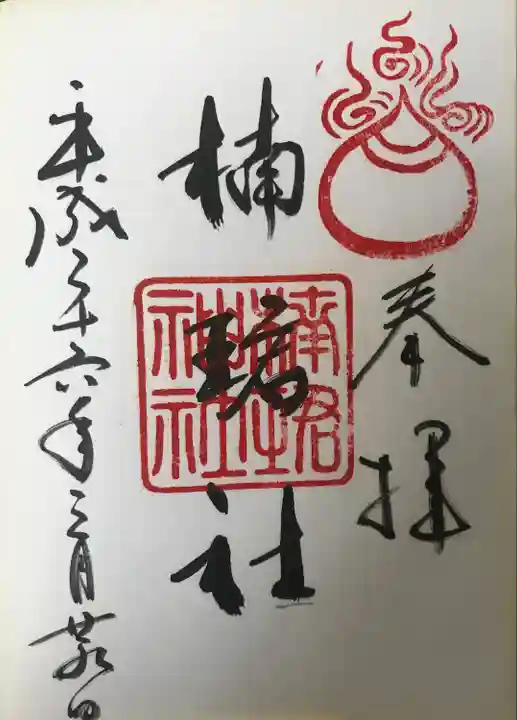 奉拝
楠珺社
楠珺神社
平成二十六年三月廿日